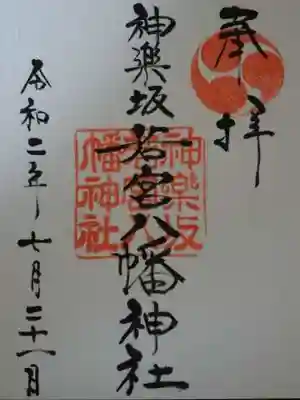 奉拝
神楽坂若宮八幡神社
神楽坂
若宮八
幡神社
令和二年七月二十一日